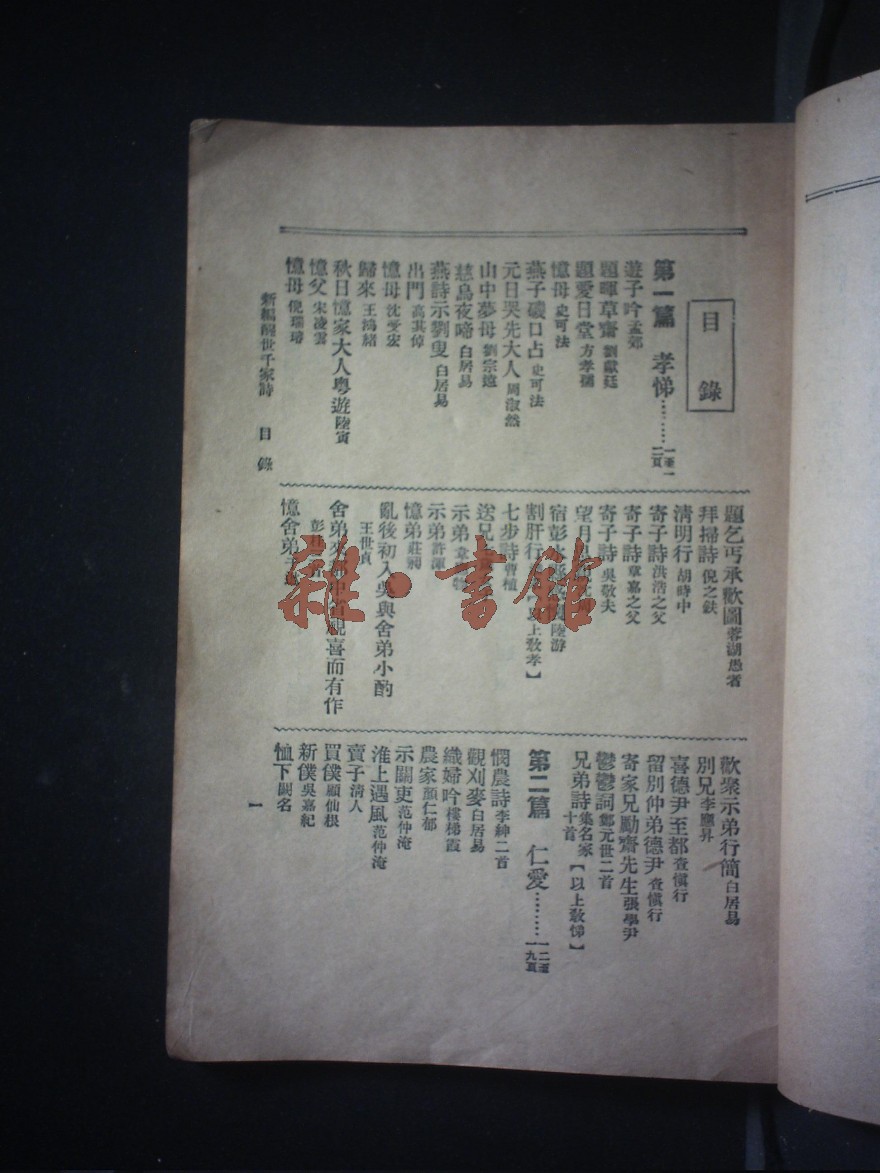 目錄
第一篇 孝悌………一至一二頁
遊子吟 孟郊
題暉草齋 劉獻廷
題愛日堂 方孝孺
憶母 史可法
燕子磯口占 史可法
元日哭先大人 周淑然
山中夢母 劉宗遠
慈烏夜啼 白居易
燕詩示劉叟 白居易
出門 高其倬
憶母 沈受宏
歸來 王鴻緒
秋日憶家大人粵遊 陸寅
憶父 宋凌雲
憶母 倪瑞璿
新編醒世千家詩 目錄
題乞丐承歡圖 蓉湖愚者
拜掃詩 倪之鈇
清明行 胡時中
寄子詩 洪浩之父
寄子詩 章嘉之父
寄子詩 吳敬夫
望月
宿彭 陸游
割肝行 【以上教孝】
七步詩 曹植
送兄
示弟
示弟 許渾
憶弟 莊昶
亂後初入吳與舍弟小酌
王世貞
舍弟 覲喜而有作
憶舍弟
歡聚示弟行簡 白居易
別兄 李應昇
喜德尹至都 查慎行
留別仲弟德尹 查慎行
寄家兄勵齋先生 張學尹
鬱鬱詞 鄭元世二首
兄弟詩 集名家十首【以上教悌】
第二篇 仁愛………一二至一九頁
憫農詩 李紳二首
觀刈麥 白居易
織婦吟 樓梯霞
農家 顏仁郁
示關吏 范仲淹
淮上遇風 范仲淹
賣子 清人
買僕 顧仙根
新僕 吳嘉紀
恤下 闕名
一
雜·書館